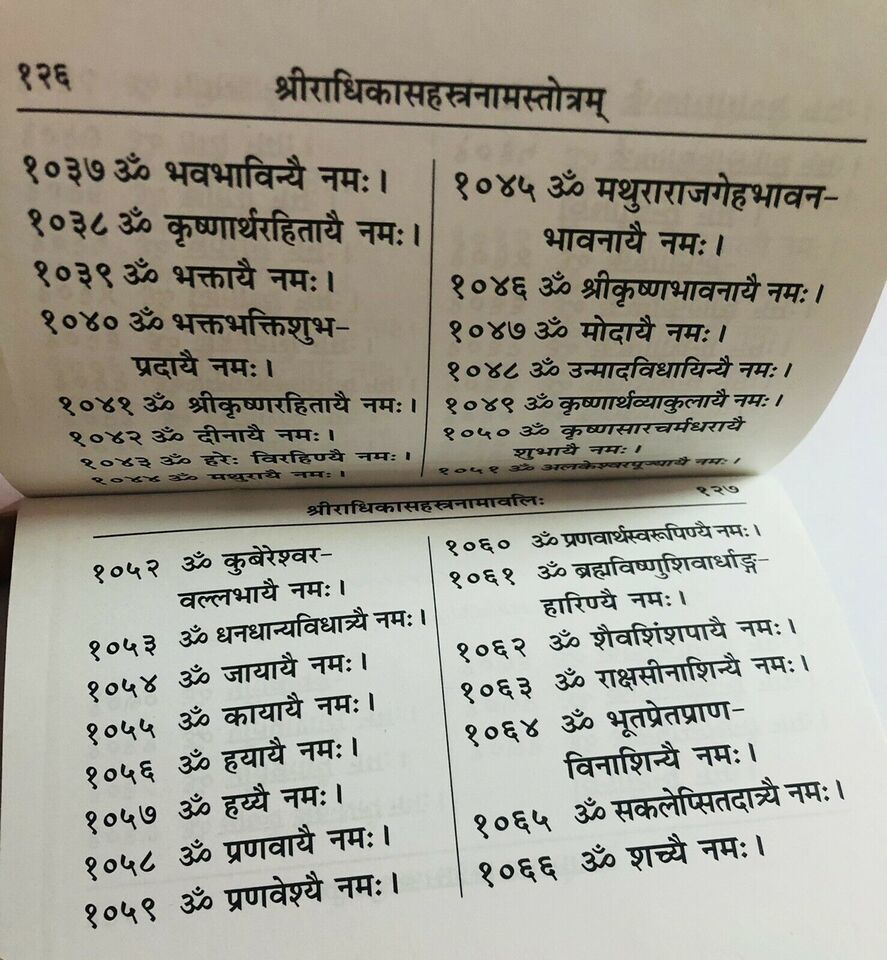 १२६
श्रीराधिकासहस्त्रनामस्तोत्रम्
१०३७ ॐ भवभाविन्यै नमः।
१०३८ ॐ कृष्णार्थरहितायै नमः।
१०३९ ॐ भक्तायै नमः।
१०४० ॐ भक्तभक्तिशुभ-
प्रदायै नमः।
१०४१ ॐ श्रीकृष्णरहितायै नमः।
१०४२ ॐ दीनायै नमः।
१०४३ ॐ हरेः विरहिण्यै नमः।
१०४४ ॐ मथुरायै नमः।
१०४५ ॐ मथुराराजगेहभावन-
भावनायै नमः।
१०४६ ॐ श्रीकृष्णभावनायै नमः।
१०४७ ॐ मोदायै नमः।
१०४८ ॐ उन्मादविधायिन्यै नमः।
१०४९ ॐ कृष्णार्थव्याकुलायै नमः।
१०५० ॐ कृष्णसारचर्मधरायै
शुभायै नमः।
१०५१ ॐ अलकेश्वरपूज्यायै नमः।
श्रीराधिकासहस्त्रनामावलिः
१२७
१०५२ ॐ कुबेरेश्वर-
वल्लभायै नमः।
१०५३ ॐ धनधान्यविधात्र्यै नमः।
१०५४ ॐ जायायै नमः।
१०५५ ॐ कायायै नमः।
१०५६ ॐ हयायै नमः।
१०५७ ॐ हय्यै नमः।
१०५८ ॐ प्रणवायै नमः।
१०५९ ॐ प्रणवेश्यै नमः।
१०६० ॐ प्रणवार्थस्वरूपिण्यै नमः।
१०६१ ॐ ब्रह्मविष्णुशिवार्धाङ्ग-
हारिण्यै नमः।
१०६२ ॐ शैवशिंशपायै नमः।
१०६३ ॐ राक्षसीनाशिन्यै नमः।
१०६४ ॐ भूतप्रेतप्राण-
विनाशिन्यै नमः।
१०६५ ॐ सकलेप्सितदात्र्यै नमः।
१०६६ ॐ शच्यै नमः।